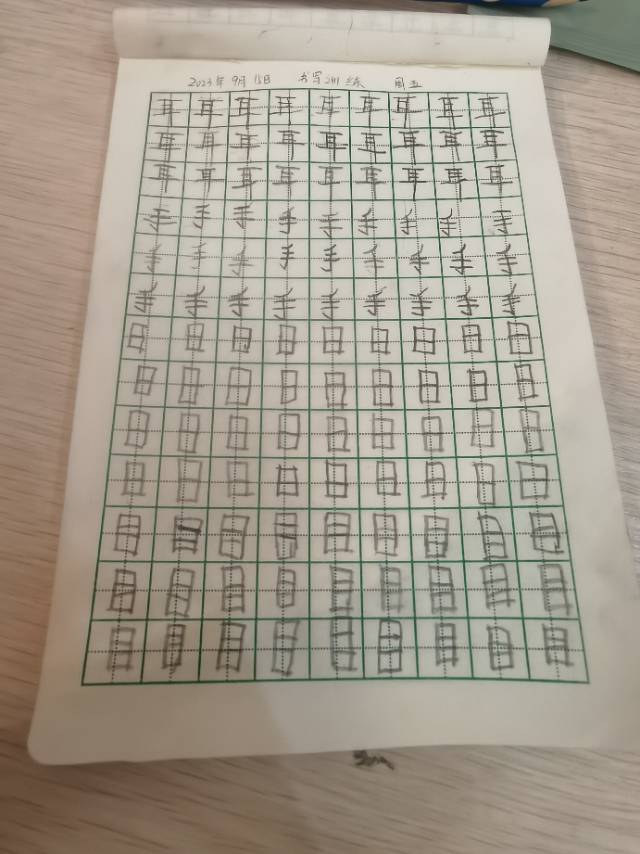 2023年9月15日 书写训练 周五
耳耳耳耳耳耳耳耳耳
耳耳耳耳耳耳耳耳耳
耳耳耳耳耳耳耳耳耳
手手手手手手手手手
手手手手手手手手手
手手手手手手手手手
日日日日日日日日日
日日日日日日日日日
日日日日日日日日日
日日日日日日日日日
目目目目目目目目目
目目目目目目目目目
目目目目目目目目目